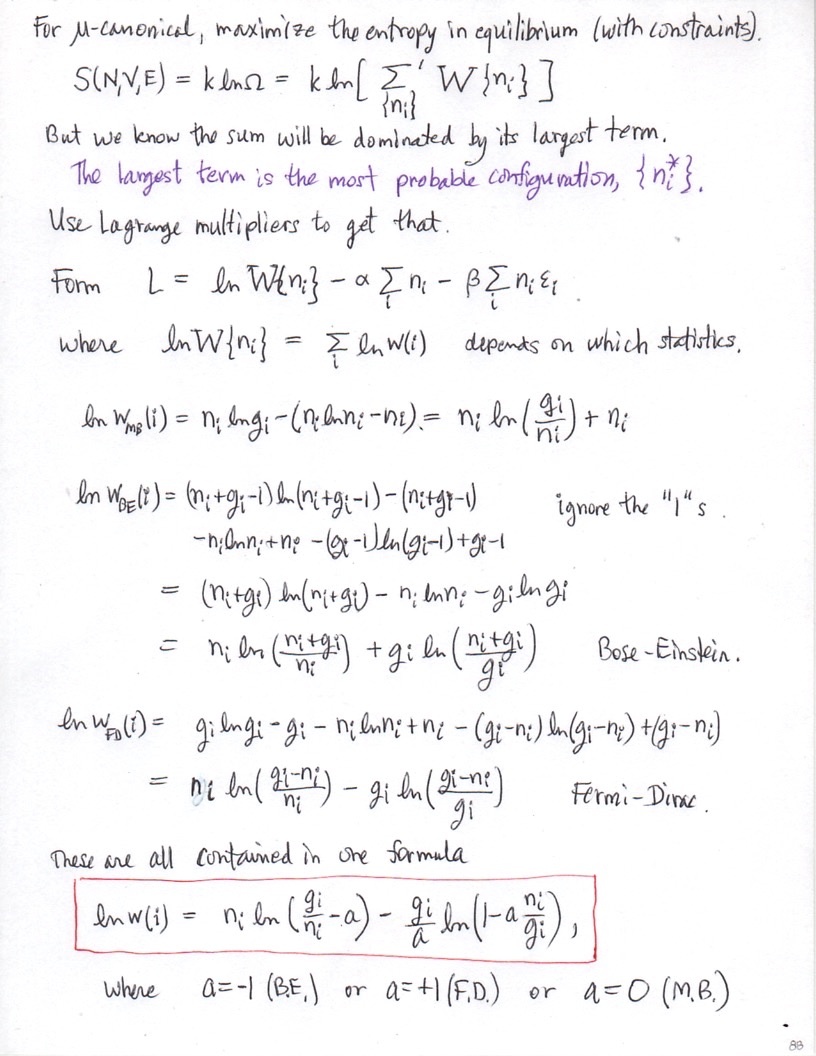 For μ-canonical, maximize the entropy in equilibrium (with constraints).
S(N,V,E) = k lnΩ = k ln[ Σ'_{nᵢ} W{nᵢ} ]
But we know the sum will be dominated by its largest term.
The largest term is the most probable configuration, {nᵢ*}.
Use Lagrange multipliers to get that.
Form L = ln W{nᵢ} − α Σᵢ nᵢ − β Σᵢ nᵢ εᵢ
where ln W{nᵢ} = Σᵢ ln w(i) depends on which statistics.
ln w_MB(i) = nᵢ ln gᵢ − (nᵢ ln nᵢ − nᵢ) = nᵢ ln(gᵢ/nᵢ) + nᵢ
ln w_BE(i) = (nᵢ+gᵢ−1) ln(nᵢ+gᵢ−1) − (nᵢ+gᵢ−1) ignore the "1"s.
−nᵢ ln nᵢ + nᵢ − (gᵢ−1) ln(gᵢ−1) + gᵢ−1
= (nᵢ+gᵢ) ln(nᵢ+gᵢ) − nᵢ ln nᵢ − gᵢ ln gᵢ
= nᵢ ln((nᵢ+gᵢ)/nᵢ) + gᵢ ln((nᵢ+gᵢ)/gᵢ) Bose-Einstein.
ln w_FD(i) = gᵢ ln gᵢ − gᵢ − nᵢ ln nᵢ + nᵢ − (gᵢ−nᵢ) ln(gᵢ−nᵢ) + (gᵢ−nᵢ)
= nᵢ ln((gᵢ−nᵢ)/nᵢ) − gᵢ ln((gᵢ−nᵢ)/gᵢ) Fermi-Dirac.
These are all contained in one formula
ln w(i) = nᵢ ln(gᵢ/nᵢ − a) − gᵢ/a ln(1 − a nᵢ/gᵢ),
where a=−1 (B.E.) or a=+1 (F.D.) or a=0 (M.B.)
88